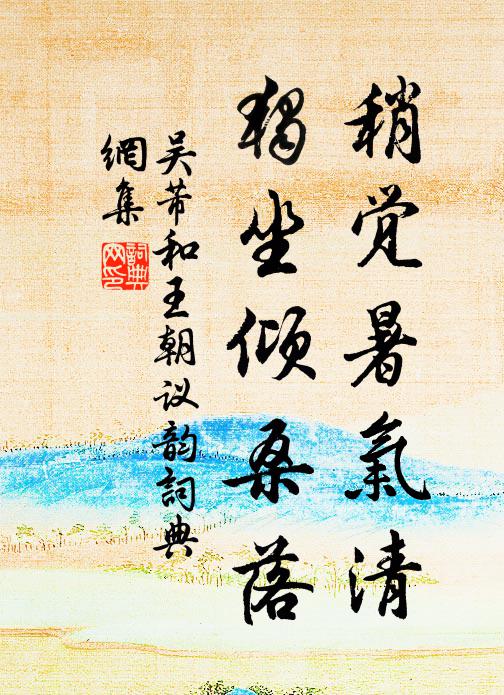 稍觉暑氣清
獨坐倾桑落
吴芾和王朝议韵詞典
網集
詞典
网印